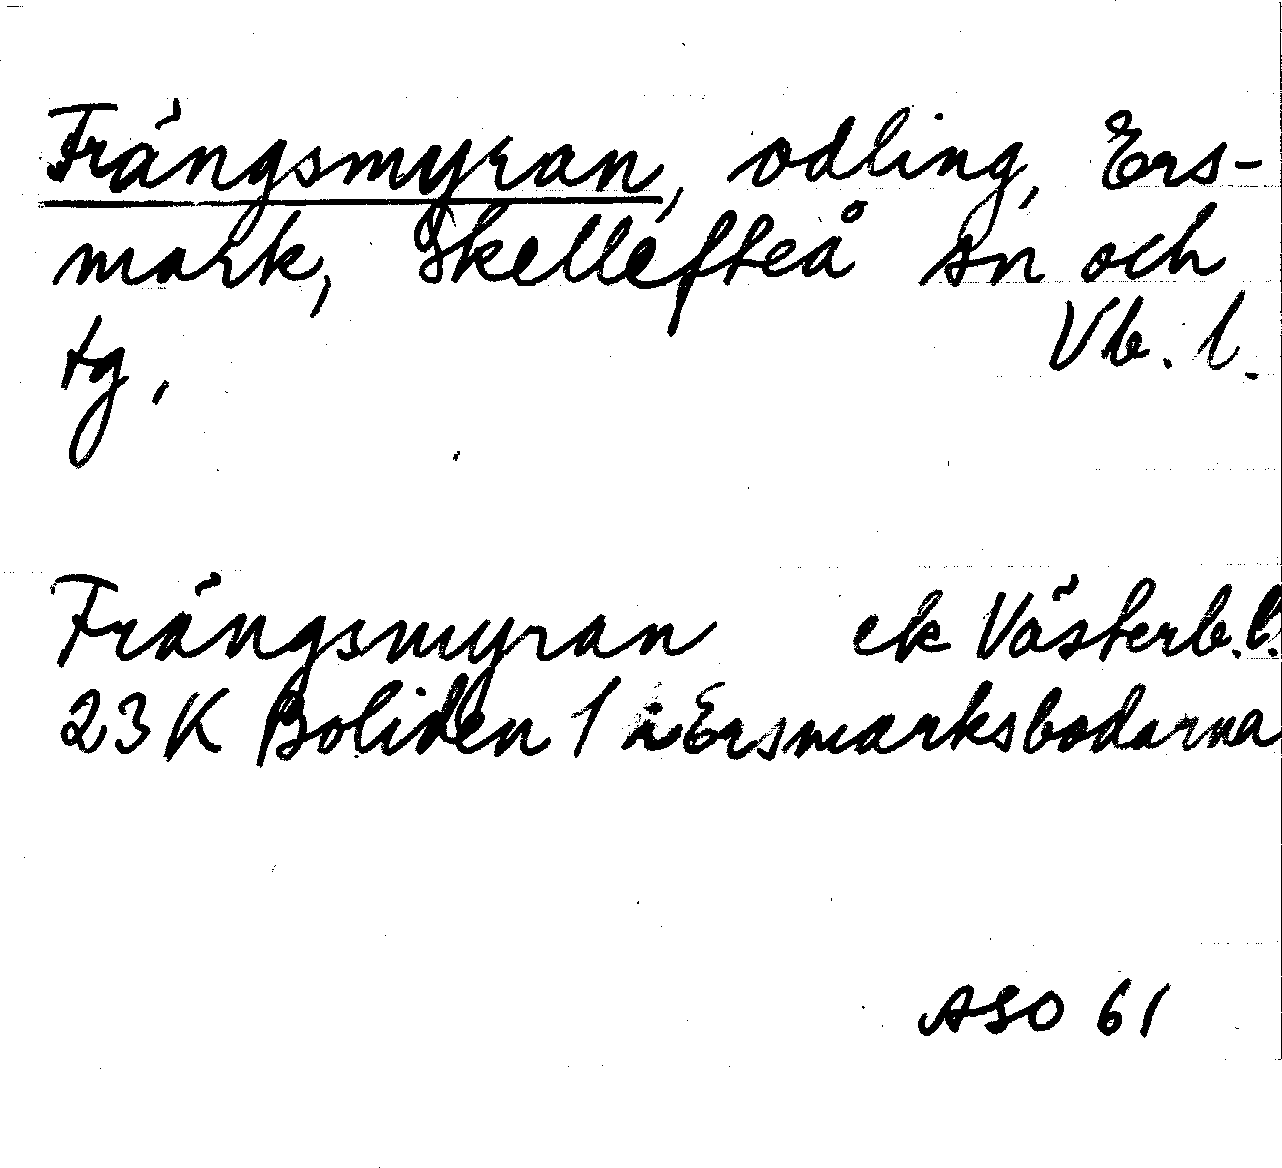 Frängsmyran, odling, Ers-
mark, Skellefteå sn och
tg, Vb. l.
Frängsmyran ek Västerb.l.
23 K Boliden 1 i Ersmarksbodarna
ASO 61